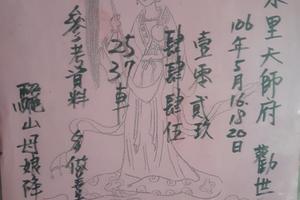 水里大師府 勸世
106年5月16.18.20日
壹零貳玖
肆肆肆伍
25
37車
參考資料
驪山老娘降